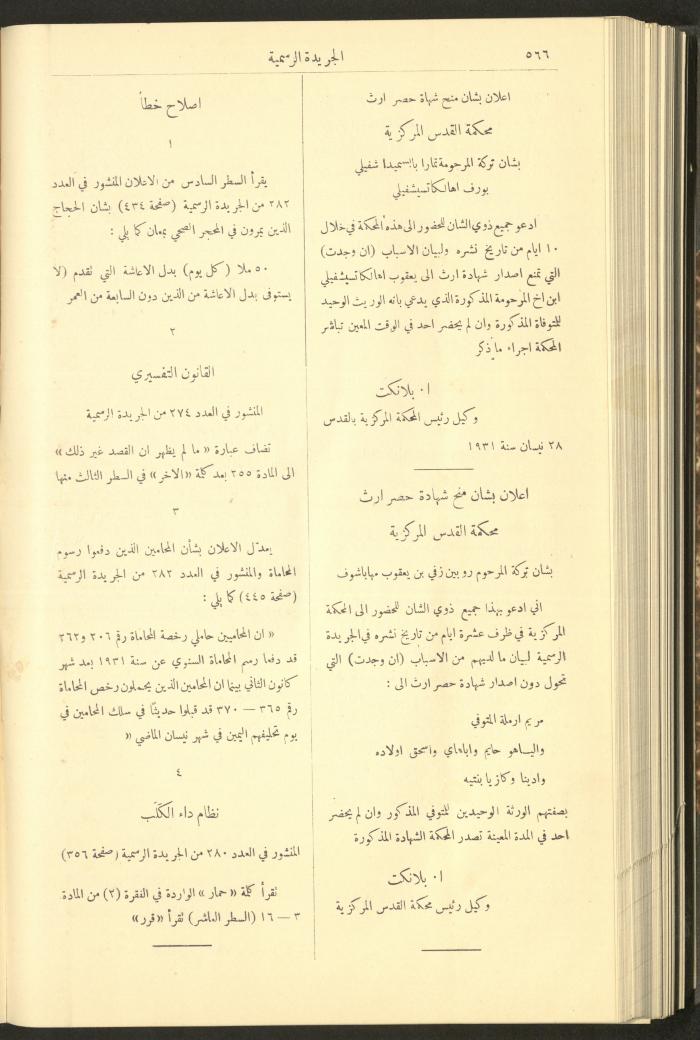 ٥٦٦
الجريدة الرسمية
اعلان بشان منح شهاة حصر ارث
محكمة القدس المركزية
بشان تركة المرحومة تمارا باسيميدا شفيلي
بورف اهانكاتسيشفيلي
ادعو جميع ذوي الشان للحضور الى هذه المحكمة في خلال
١٠ ايام من تاريخ نشره ولبيان الاسباب (ان وجدت)
التي تمنع اصدار شهادة ارث الى يعقوب اهانكاتسيشفيلي
ابن اخ المرحومة المذكورة الذي يدعي بانه الوريث الوحيد
للمتوفاة المذكورة وان لم يحضر احد في الوقت المعين تباشر
المحكمة اجراء ما ذكر
ا. بلانكت
وكيل رئيس المحكمة المركزية بالقدس
٢٨ نيسان سنة ١٩٣١
اعلان بشان منح شهادة حصر ارث
محكمة القدس المركزية
بشان تركة المرحوم روبين زفي بن يعقوب مهاياشوف
اني ادعو بهذا جميع ذوي الشان للحضور الى المحكمة
المركزية في ظرف عشرة ايام من تاريخ نشره في الجريدة
الرسمية لبيان ما لديهم من الاسباب (ان وجدت) التي
تحول دون اصدار شهادة حصر ارث الى :
مريم ارملة المتوفي
والياهو حايم واباماي واسحق اولاده
وادينا وكازيا بنتيه
بصفتهم الورثة الوحيدين للمتوفي المذكور وان لم يحضر
احد في المدة المعينة تصدر المحكمة الشهادة المذكورة
ا. بلانكت
وكيل رئيس محكمة القدس المركزية
اصلاح خطأ
١
يقرأ السطر السادس من الاعلان المنشور في العدد
٢٨٢ من الجريدة الرسمية (صفحة ٤٣٤) بشان الحجاج
الذين يمرون في المحجر الصحي بمعان كما يلي :
٥٠ ملا (كل يوم) بدل الاعاشة التي تقدم (لا
يستوفى بدل الاعاشة من الذين دون السابعة من العمر
٢
القانون التفسيري
المنشور في العدد ٢٧٤ من الجريدة الرسمية
تضاف عبارة « ما لم يظهر ان القصد غير ذلك »
الى المادة ٢٥٥ بعد كلمة «الاخر» في السطر الثالث منها
٣
يعدّل الاعلان بشأن المحامين الذين دفعوا رسوم
المحاماة والمنشور في العدد ٢٨٢ من الجريدة الرسمية
(صفحة ٤٤٥) كما يلي :
« ان المحاميين حاملي رخصة المحاماة رقم ٢٠٦ و٢٦٢
قد دفعا رسم المحاماة السنوي عن سنة ١٩٣١ بعد شهر
كانون الثاني بينما ان المحامين الذين يحملون رخص المحاماة
رقم ٣٦٥ — ٣٧٠ قد قبلوا حديثًا في سلك المحامين في
يوم تحليفهم اليمين في شهر نيسان الماضي »
٤
نظام داء الكَلَب
المنشور في العدد ٢٨٠ من الجريدة الرسمية (صفحة ٣٥٦)
تقرأ كلمة « حمار » الواردة في الفقرة (٢) من المادة
٣ — ١٦ (السطر العاشر) تقرأ «قرر»